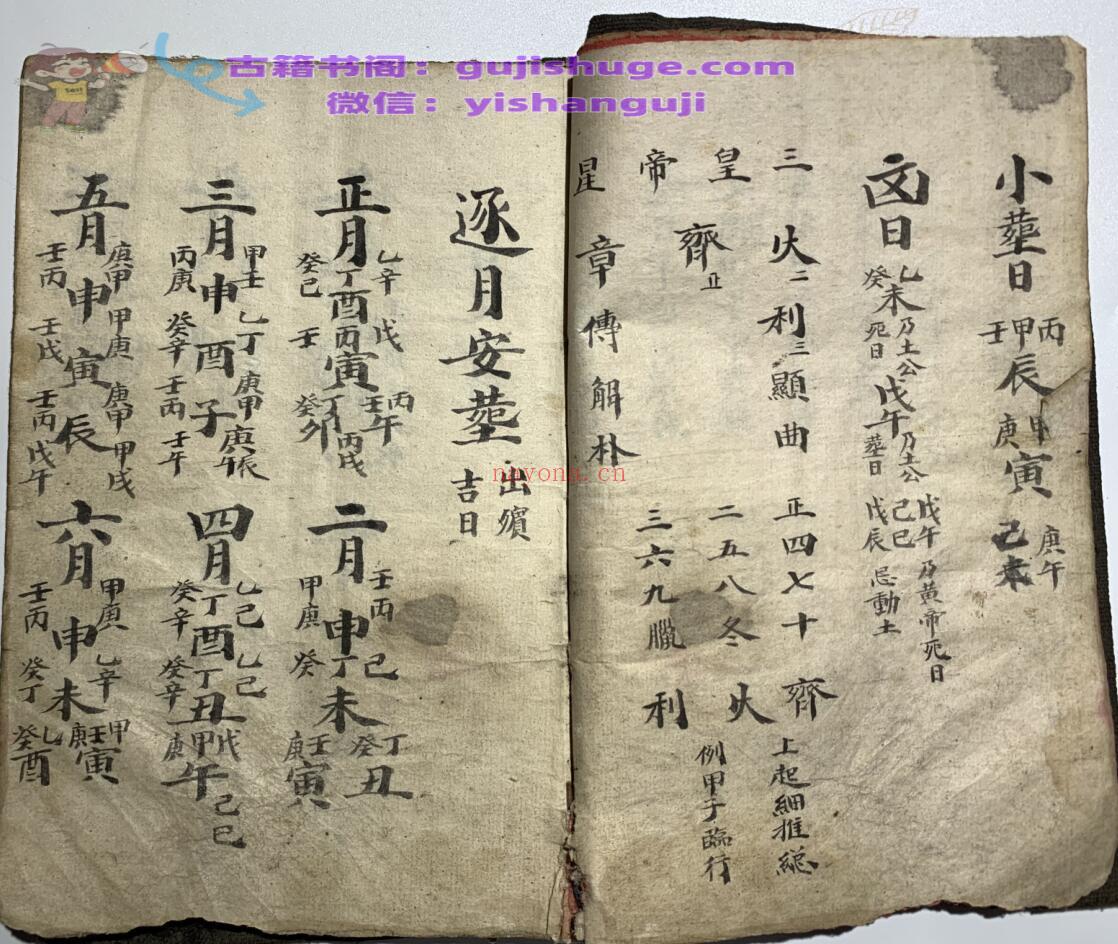 古籍书阁：gujishuge.com
微信：yishanguji
小塟日 丙甲壬辰 甲庚寅 庚午 己未
凶日 乙癸未 乃土公死日 戊午 乃土公塟日 戊午 己巳 戊辰 乃黃帝死日 忌動土
三火二利三顯曲 正四七十 齊 上起細推総
皇齊正 二五八冬 火 例甲子臨行
帝 三六九臘 利
星章傳解朴
逐月安塟 出殯吉日
正月 乙辛丁癸己酉 戊丙壬寅 丙壬午 丁癸卯 丙戌 二月 壬丙甲庚申 己丁癸未 丁癸丑 壬庚寅
三月 甲壬丙庚申 乙丁癸辛酉 庚甲壬丙子 庚辰 壬午 四月 乙己丁癸辛酉 乙己丁癸辛丑 戊甲庚午 己巳
五月 庚甲壬丙申 甲庚壬戊寅 庚甲壬丙辰 甲戌 戊午 六月 甲庚壬丙申 乙辛癸丁未 甲壬庚寅 乙癸酉
nayona.cn